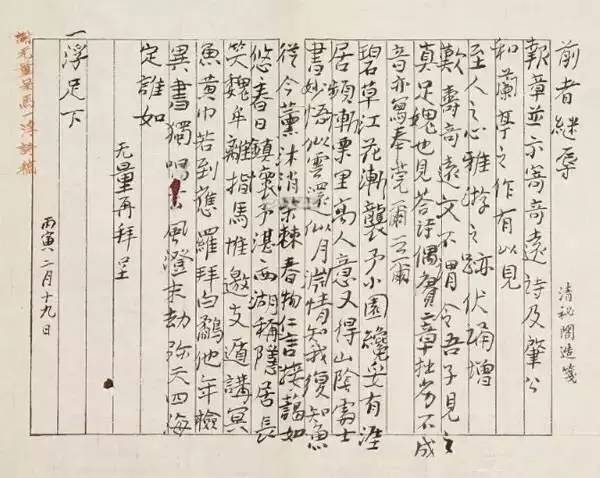 前者継辱
報章並示寄奇遠詩及肇公
和蘭亭之作有以見
至人之心雅游之跡伏誦增
歎壽奇遠文不冑令吾子見之
真足媿也見答詩偶賡二章拙劣不成
音亦寫奉莞爾云爾
碧草江花漸襲予小園纔足有涯
居頻慚栗里高人意又得山陰處士
書妙悟似雲還似月淵情知我復知魚
從今薰沐消棘春物仁言浹藹如
悠春日鎮褱予湛西湖稱隱居長
笑魏牟離指馬推邀支遁講冥
魚黄巾若到應羅拜白他年驗
異書獨唱風澄末劫弥天四海
定誰如
无量再拜呈
一浮足下
丙寅二月十九日
謝无量呈馬一浮詩稿
清秘閣造箋